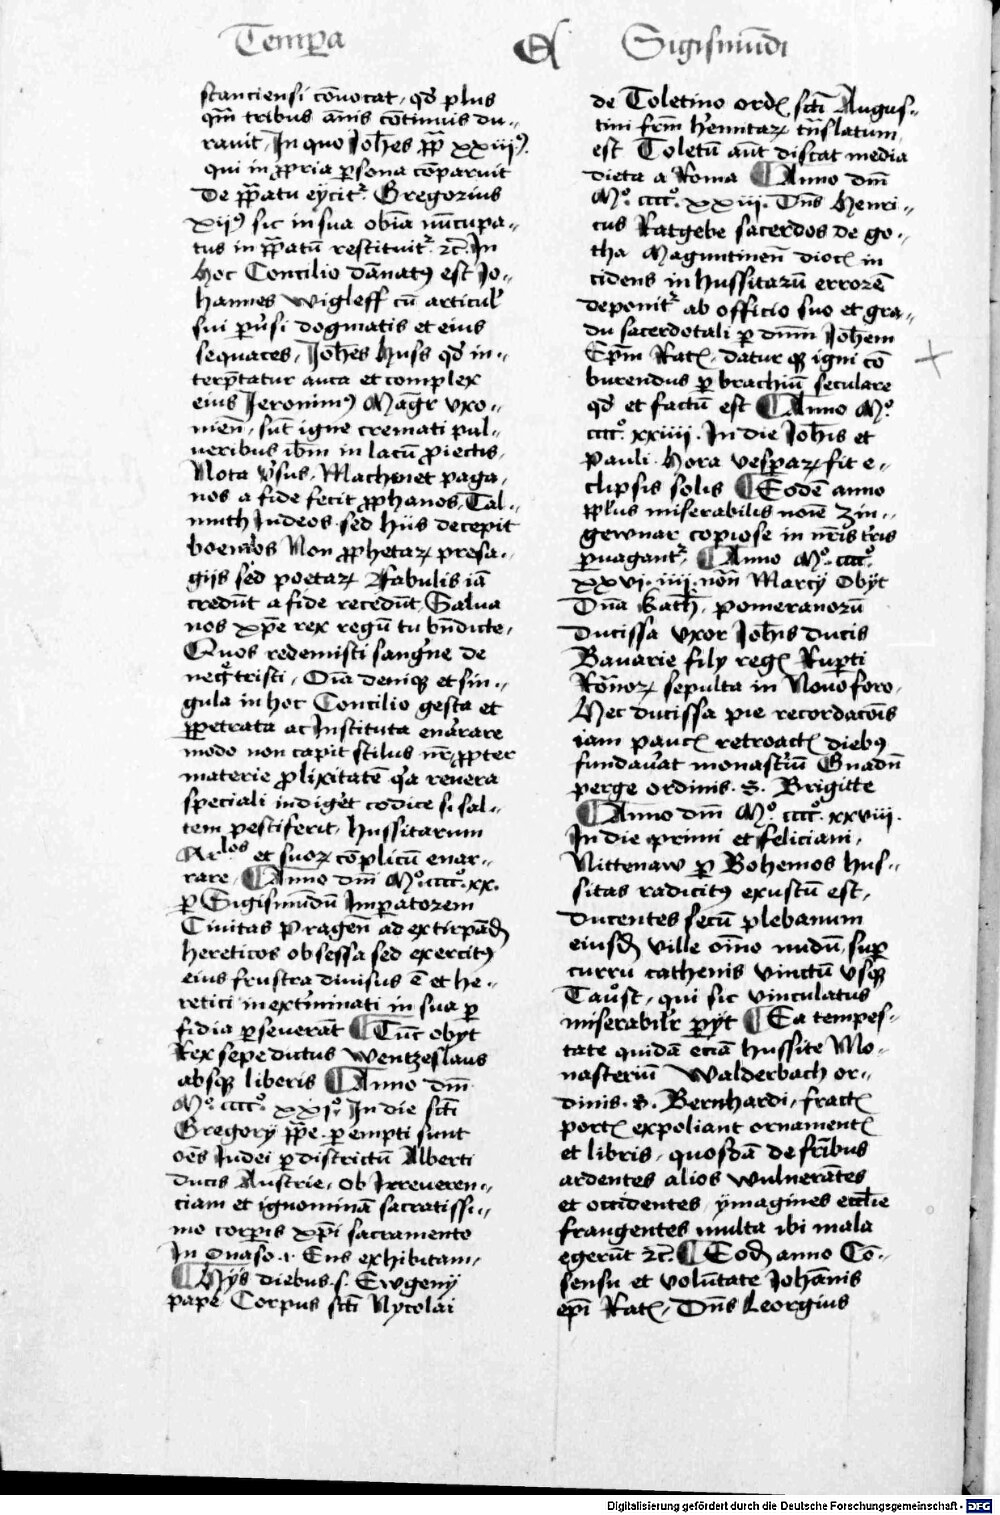 Temp̄a Et Sigismūdi
stanciensi cōuocat, qd̄ plus
qm̄ tribus ānis cōtinuis du-
rauit, In quo Joh̄es p̄p̄ xxiiiꝰ.
qui in ꝓpria ꝑsona cōparuit
de p̄p̄atu eycit᷑ Gregorius
xijꝰ sic in sua obīa nūcupa-
tus in p̄p̄atū restituit᷑ ⁊c̄. In
hoc Concilio dānatꝰ est Jo-
hannes wigleff cū articul̓
sui ꝑũsi dogmatis et eius
sequaces, Joh̄es Huss qd̄ in-
terp̄tatur auca et complex
eius Jeronimꝰ Maḡr vxo-
meñ, sūt igne cremati pul-
ueribus ib̄m in lacū ꝓiectis,
Nota v̓sus, Machmet paga-
nos a fide fecit ꝓphanos, Tal-
muth Judeos, sed hiis decepit
boemos Non ꝓphetaꝝ presa-
gijs sed poetaꝝ Fabulis iā
credūt a fide recedūt, Salua
nos xp̄e rex regū tu bn̄dicte,
Quos redemisti sangᵉne de
nece tristi, Oīa deniqꝫ et sin-
gula in hoc Concilio gesta et
ꝑpetrata ac Instituta enarrare
modo non capit stilus nr̄ ꝓpter
materie ꝓlixitatē qa reuera
speciali indiget codice si sal-
tem pestiferū, hussitarum
Ar.los et suoꝝ cōplicū enar-
rare, Anno dm̄ M°.cccc°.xx.
ꝑ Sigismūdū Imꝑatorem
Ciuitas Pragen̄ ad extirpād
hereticos obsessa sed exercitꝰ
eius frustra diuisus ē et he-
retici inext̓minati in sua ꝑ
fidia ꝑseuerāt Tūc obyt
Rex sepedictus wentzeslaus
absqꝫ liberis Anno dm̄
M°.cccc°. xxi° In die sc̄ti
Gregorÿ p̄p̄e. ꝑempti sunt
oēs Judei ꝑ districtū Alberti
ducis Austrie, ob Irreueren-
ciam et ignominiā sacratissi-
mo corꝑis xp̄i sacramento
In onaso.r. Ens exhibitam,
Hÿs diebus. s. Ewgenÿ
pape Corpus sc̄ti Nycolai
de Toletino ord. sc̄ti Augus-
tini fr̄m h̓emitaꝝ tn̄slatum
est Toletū aūt distat media
dieta a Roma Anno dm̄
M°. cccc°. xxiii. Dn̄s Henri-
cus Ratgebe sacerdos de go-
tha Maguntinen̄ dioc. in
cidens in hussitarū errorē
deponit᷑ ab officio suo et gra-
du sacerdotali ꝑ dn̄m Joh̄em
Ep̄m Rat., datur qꝫ igni cō
burendus ꝑ brachiū seculare
qd̄ et factū est Anno M°
cccc°. xxiiii. In die Joh̄is et
Pauli. Hora vesꝑaꝝ fit e-
clipsis solis Eodē anno
ppl̓us miserabilis noīe zin-
gewnar copiose in nr̄is t̓ris
ꝑuagant᷑, Anno M°. cccc°.
xxvi. iiij. non̄ Marcÿ obÿt
Dn̄a Kath., pomeranorū
Ducissa vxor Joh̄is ducis
Bauarie filÿ reg. Ruꝑti
Rom̄oꝝ sepulta in Nouoforo.
Hec ducissa pie recordacōis
iam pauc. retroact. diebꝰ
fundau̓at monast̓iū Gnadn̄
perge ordinis. S. Brigitte
Anno dm̄ M°. cccc°. xxviii.
In die primi et feliciani,
Nittenaw ꝑ Bohemos hus-
sitas radicitꝰ exustū est,
ducentes secū plebanum
eiusd. ville om̄o nudū, suꝑ
curru cathenis vinctū vsqꝫ
Taůst, qui sic vinculatus
miserabilit̓ ꝑÿt Ea tempes-
tate quidā eciā hussite Mo-
nasteriū Walderbach or-
dinis. S. Bernhardi, fract.
port. expoliant ornament.
et libris, quosdā de frībus
ardentes alios wulnerātes
et occidentes, ÿmagines eccl̄ie
frangentes multa ibi mala
egerūt ⁊c̄. Eod. anno Cō-
sensu et volūtate Johānis
ep̄i Rat., Dn̄s Leorgius
Digitalisierung gefördert durch die Deutsche Forschungsgemeinschaft - DFG